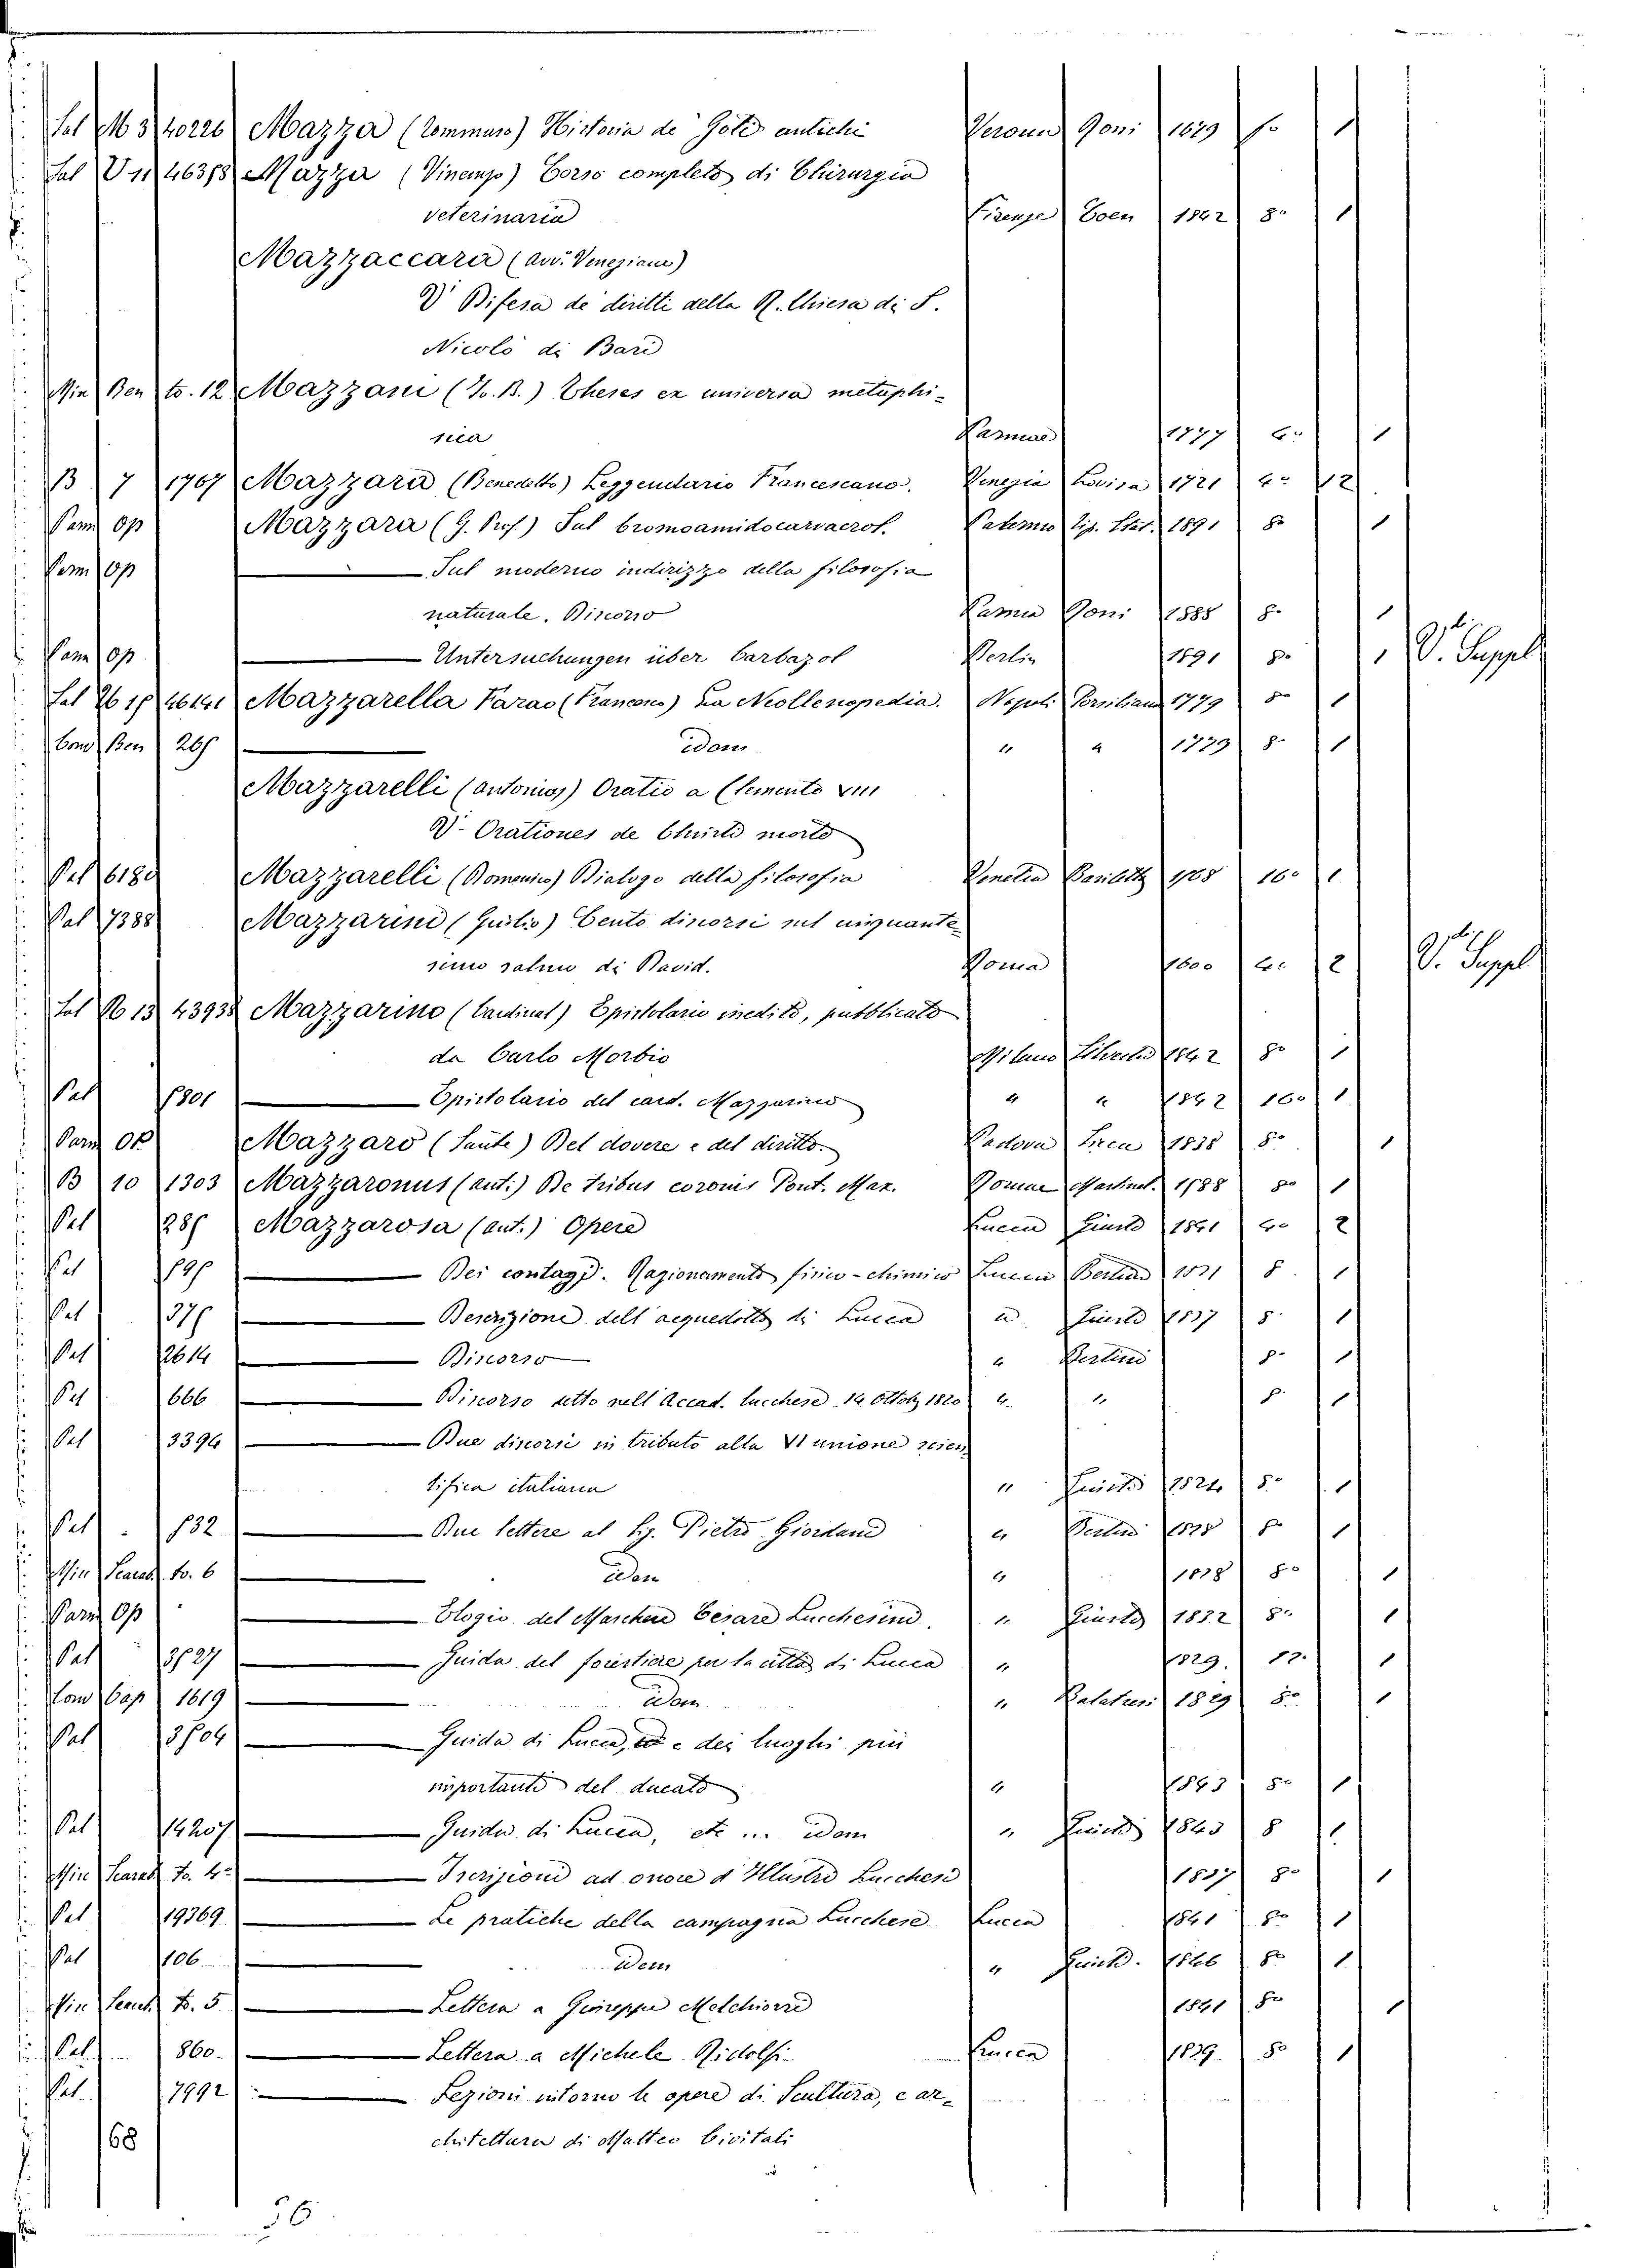 Sal M 3 40226 Mazza (Tommaso) Historia de' Goti antichi Verona Goni 1629 fo 1
Sal V 11 46378 Mazza (Vincenzo) Corso completo di Chirurgia
veterinaria Firenze Coen 1842 8° 1
Mazzaccara (avv. Veneziano)
V Difesa de' diritti della R. Chiesa di S.
Nicolò di Bari
Min Ben to. 12 Mazzani (G. B.) Theses ex universa metaphi-
sica Parmae 1777 6° 1
B 7 1767 Mazzara (Benedetto) Leggendario Francescano. Venezia Lovisa 1721 4° 12
Parm Op Mazzara (G. Prof.) Sul bromoamidocarvacrol. Palermo tip. Stat. 1891 8° 1
Parm Op Sul moderno indirizzo della filosofia
naturale. Discorso Parma Goni 1888 8° 1
Parm Op Untersuchungen über Carbazol Berlin 1891 8° 1 V. Suppl
Sal 46141 Mazzarella Farao (Francesco) La Neollenopedia. Napoli Porsiliana 1779 8° 1
Com Ben 265 idem " " 1779 8° 1
Mazzarelli (Antonius) Oratio a Clemente VIII
V- Orationes de Christi morte
Pal 6180 Mazzarelli (Domenico) Dialogo della filosofia Venetia 16° 1
Pal 7388 Mazzarini (Giulio) Cento discorsi sul cinquante-
simo salmo di David. Roma 1600 4° 2 V. Suppl
Sal 13 43938 Mazzarino (Cardinal) Epistolario inedito, pubblicato
da Carlo Morbio Milano 1842 8° 1
Pal 1801 Epistolario del card. Mazzarino " " 1842 16° 1
Parm Op Mazzaro (Sante) Del dovere e del diritto. Padova 1838 8° 1
B 10 1303 Mazzaronus (Ant.) De tribus coronis Pont. Max. Romae Martinel. 1588 8° 1
Pal 285 Mazzarosa (Ant.) Opere Lucca Giusti 1841 4° 2
Pal 595 Dei contagi. Ragionamento fisico-chimico Lucca Bertini 1831 8. 1
Pal 375 Descrizione dell'acquedotto di Lucca " Giusti 1837 8. 1
Pal 2614 Discorso " Bertini 8° 1
Pal 666 Discorso detto nell'Accad. lucchese 14 Ottob 1820 " " 8. 1
Pal 3396 Due discorsi in tributo alla VI unione scien-
tifica italiana " Giusti 8° 1
Pal 532 Due lettere al Sig. Pietro Giordani " Bertini 1828 8° 1
Min Scarab. to. 6 idem " 1828 8° 1
Parm Op Elogio del Marchese Cesare Lucchesini. " Giusti 1832 8° 1
Pal 3527 Guida del forestiere per la città di Lucca " 1829. 12. 1
Com Cap 1619 idem " 1829 8° 1
Pal 3504 Guida di Lucca, e dei luoghi più
importanti del ducato " 1843 8° 1
Pal 14207 Guida di Lucca, etc ... idem " Giusti 1843 8 1
Min Scarab. to. 4° Iscrizioni ad onore d'Illustri Lucchesi 1827 8° 1
Pal 19369 Le pratiche della campagna Lucchese Lucca 1841 8° 1
Pal 106 idem " Giusti. 1846 8° 1
Min Scarab to. 5 Lettera a Giuseppe Melchiorri 1841 8° 1
Pal 860 Lettera a Michele Ridolfi Lucca 1829. 8° 1
Pal. 7992 Lezioni intorno le opere di Scultura, e ar-
chitettura di Matteo Civitali
68
56